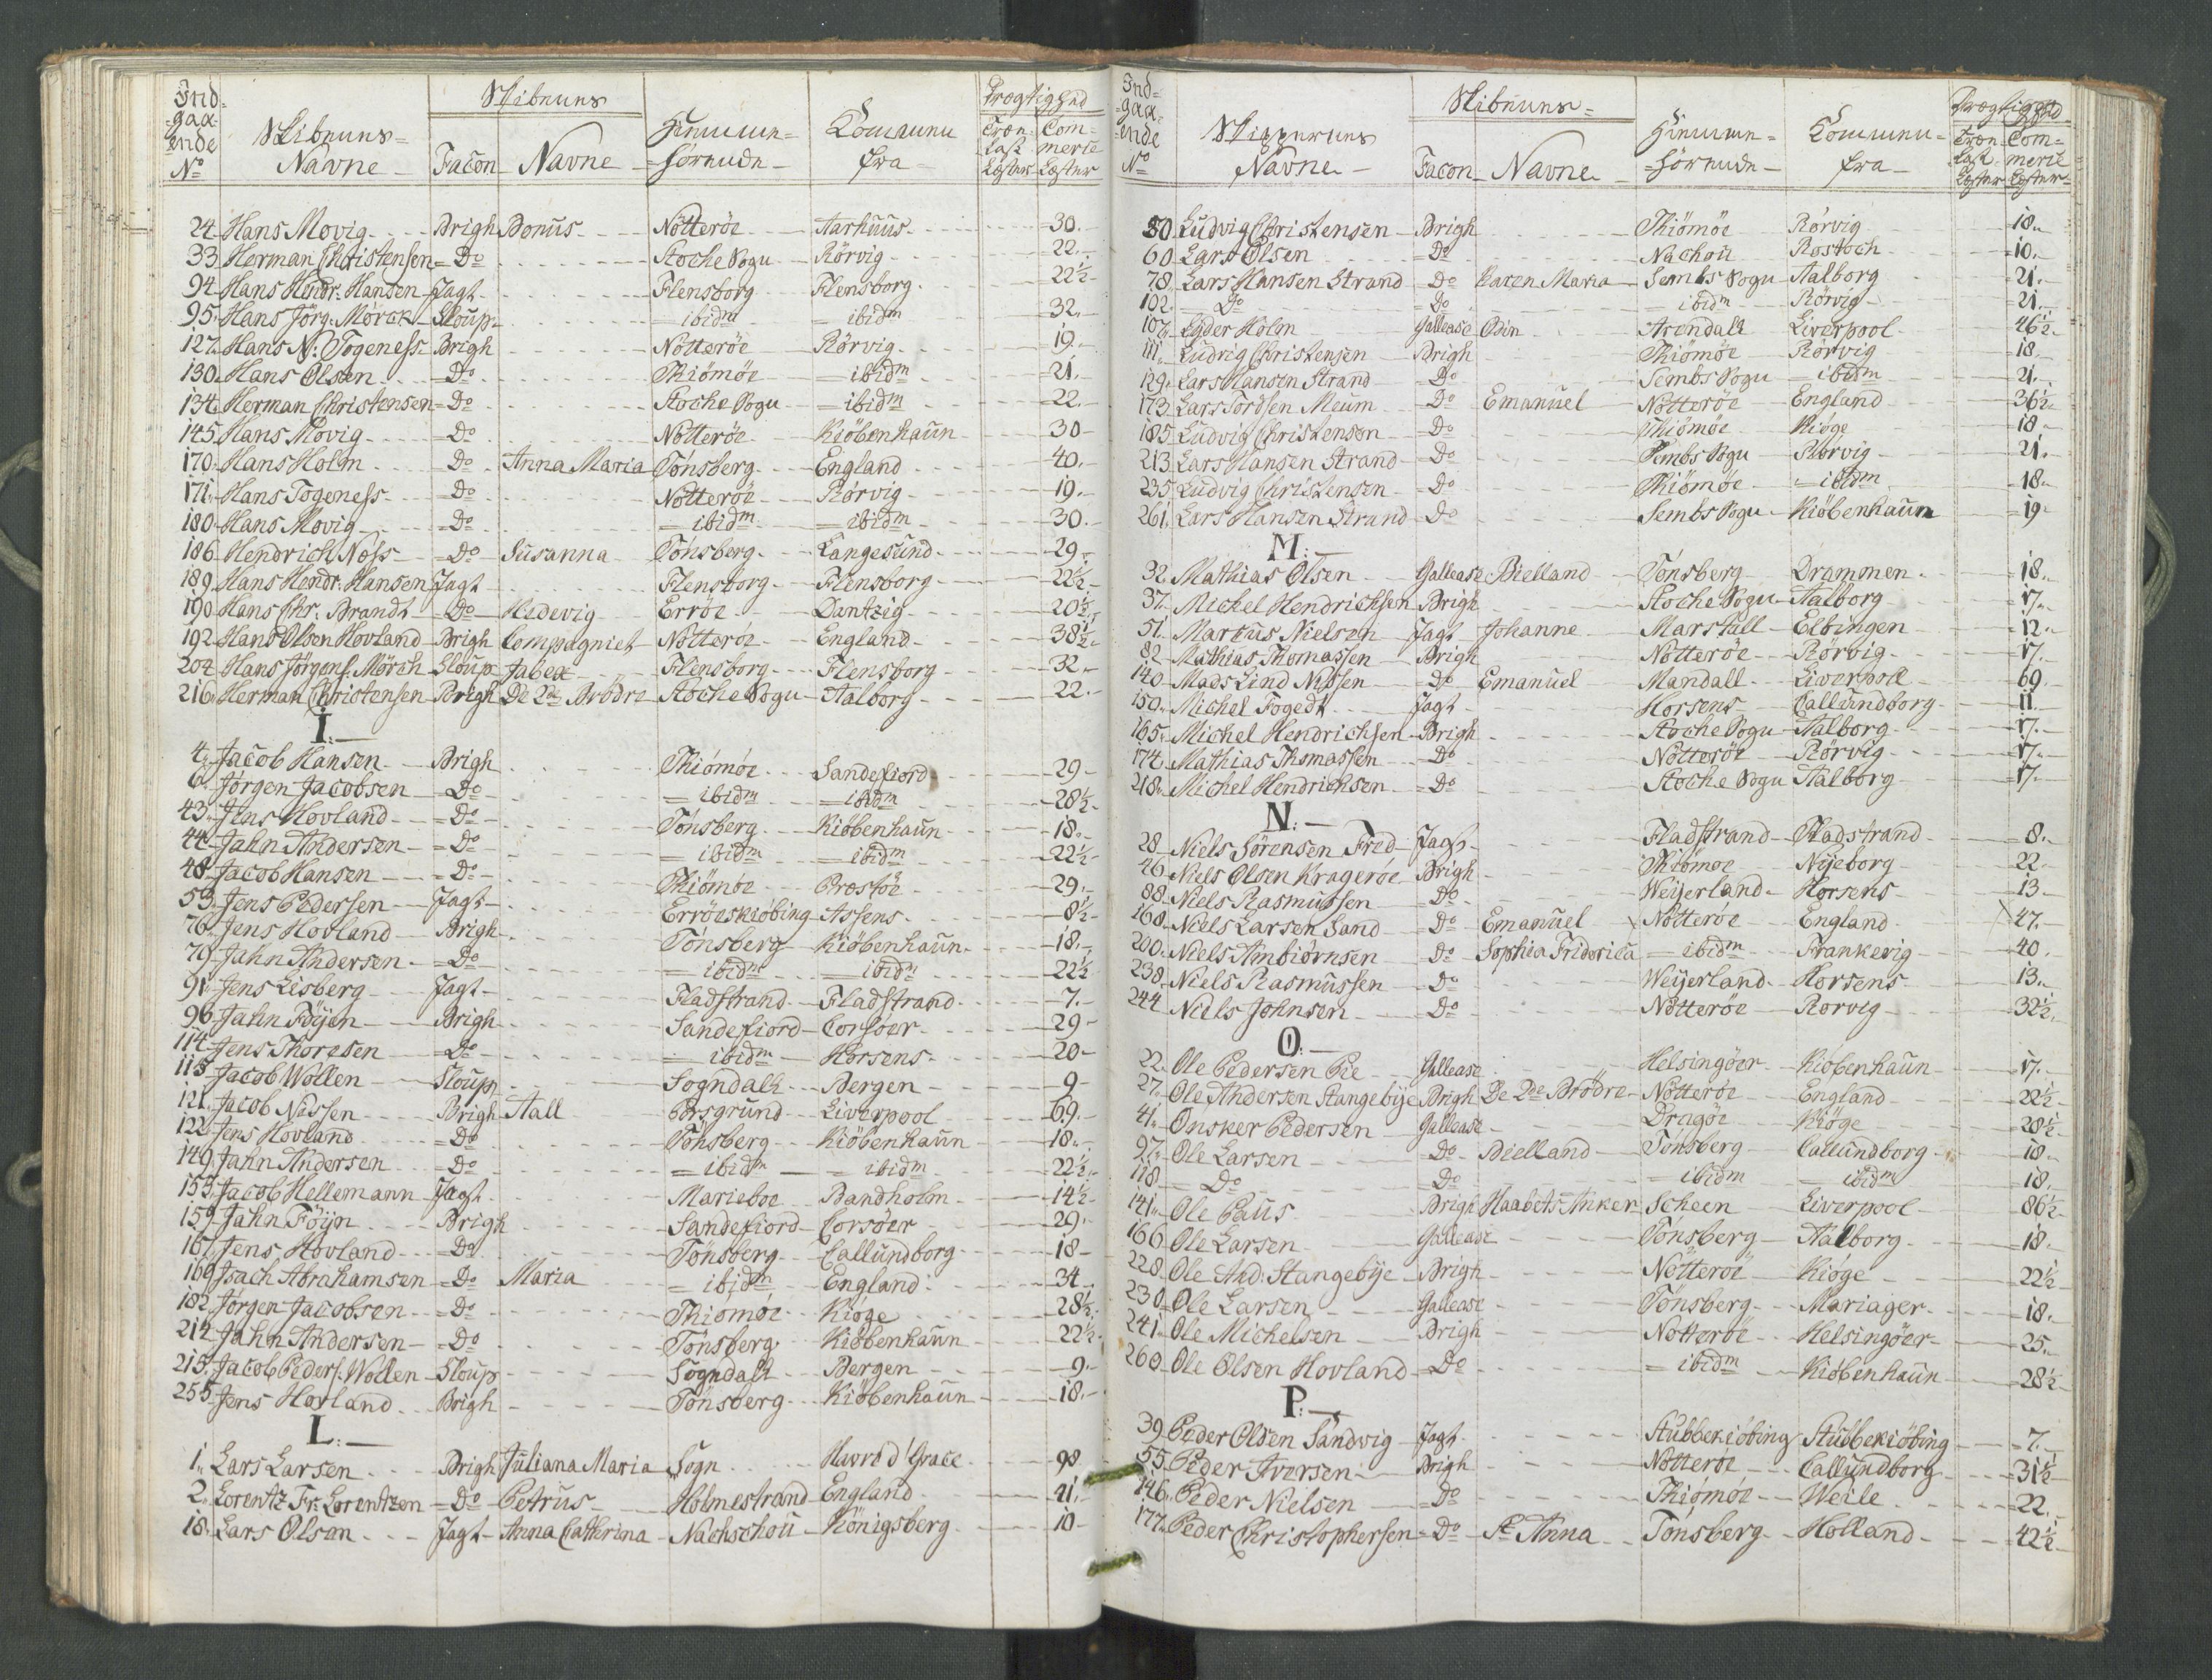 Ind-
gaa-
ende
No
Skibnuns
Navne
Skibnuns
Facon
Navne
Hiemme-
hörende
Komme
fra
Drægtighed
Træ-
Last
Læster
Com-
mercie
Læster
24 Hans Movig Brigh Bonus Nötteröe Aarhuus 30.
33 Herman Christensen Do Stoche Sogn Rörvig 22.
94 Hans Hndr: Hansen Jagt Flensborg Flensborg 22½
95 Hans Jörg. Mörck Sloup ibidm ibidm 32.
127 Hans N: Togeness Brigh Nötteröe Rörvig 19.
130 Hans Olsen Do Thiömöe ibidm 21.
134 Herman Christensen Do Stoche Sogn ibidm 22.
145 Hans Movig Do Nötteröe Kiöbenhaun 30
170 Hans Holm Do Anna Maria Tönsberg England 40.
171 Hans Togeness Do Nötteröe Rörvig 19.
180 Hans Movig Do ibidm ibidm 30.
186 Hendrich Noss Do Susanna Tönsberg Langesund 29.
189 Hans Hendr: Hansen Jagt Flensborg Flensborg 22½
190 Hans Chr. Brandt Do Hedevig Erröe Dantzig 20½
192 Hans Olsen Hovland Brigh Compagniet Nötteröe England 38½
204 Hans Jörgens. Mörch Sloup Jabex Flensborg Flensborg 32.
216 Herman Christensen Brigh De 2de Brödre Stoche Sogn Aalborg 22.
I:
4 Jacob Hansen Brigh Thiömöe Sandefiord 29
6 Jörgen Jacobsen Do ibidm ibidm 28½
43 Jens Hovland Do Tönsberg Kiöbenhaun 18.
44 Jahn Andersen Do ibidm ibidm 22½
48 Jacob Hansen Do Thiömöe Prestöe 29.
53 Jens Pedersen Jagt Erröeskiöbing Assens 8½
76 Jens Hovland Brigh Tönsberg Kiöbenhaun 18.
79 Jahn Andersen Do ibidm ibidm 22½
91 Jens Lisberg Jagt Fladstrand Fladstrand 7.
96 Jahn Föijen Brigh Sandefiord Corsöer 29
114 Jens Thoresen Do ibidm Horsens 20
115 Jacob Wollen Sloup Sogndall Bergen 9
121 Jacob Nissen Brigh Aall Porsgrund Liverpool 69.
122 Jens Hovland Do Tönsberg Kiöbenhaun 18.
149 Jahn Andersen Do ibidm ibidm 22½
155 Jacob Hellemann Jagt Marieboe Bandholm 14½
159 Jahn Föijn Brigh Sandefiord Corsöer 29.
167 Jens Hovland Do Tönsberg Callundborg 18
169 Isach Abrahamsen Do Maria ibidm England 34
182 Jörgen Jacobsen Do Thiomöe Kiöge 28½
214 Jahn Andersen Do Tönsberg Kiöbenhaun 22½
215 Jacob Peders. Wollen Sloup Sogndall Bergen 9.
255 Jens Hovland Brigh Tönsberg Kiöbenhaun 18.
L:
1 Lars Larsen Brigh Juliana Maria Sogn Havre d'Grace 98
2 Lorentz Fr. Lorentzen Do Petrus Holmestrand England 21.
18 Lars Olsen Jagt Anna Cathrina Nachschou Königsberg 10
Ind-
gaa-
ende
No
Skipperens
Navne
Skibnuns
Facon
Navne
Hiemme-
hörende
Komme
fra
Drægtighed
Træ-
Last
Læster
Com-
mercie
Læster
50 Ludvig Christensen Brigh Thiömöe Rörvig 18.
60 Lars Olsen Do Nachou Rostoch 10.
78 Lars Hansen Strand Do Karen Maria Sembs Sogn Aalborg 21.
102 Do Do ibidm Rörvig 21.
107 Lyder Holm Gallease Odin Arendall Liverpool 46½
111 Ludvig Christensen Brigh Thiömöe Rörvig 18.
129 Lars Hansen Strand Do Sembs Sogn ibidm 21.
173 Lars Tordsen Meum Do Emanuel Nötteröe England 36½
185 Ludvig Christensen Do Thiömöe Kiöge 18
213 Lars Hansen Strand Do Sembs Sogn Rörvig 21.
235 Ludvig Christensen Do Thiömöe ibidm 18.
261 Lars Hansen Strand Do Sembs Sogn Kiöbenhaun 19
M:
32 Mathias Olsen Gallease Bielland Tönsberg Drammen 18.
37 Mickel Hendrichsen Brigh Stoche Sogn Aalborg 17.
51 Marcus Nielsen Jagt Johanne Marstall Elbingen 12.
82 Mathias Thomassen Brigh Nötteröe Rörvig 17.
140 Mads Lind Nissen Do Emanuel Mandall Liverpoll 69
150 Michel Fogedt Jagt Horsens Callundborg 11.
165 Michel Hendrichsen Brigh Stoche Sogn Aalborg 17.
174 Mathias Thomassen Do Nötteröe Rörvig 17.
218 Michel Hendrichsen Do Stoche Sogn Aalborg 17.
N:
28 Niels Sörensen Fred Jagt Fladstrand Fladstrand 8.
46 Niels Olsen Krageröe Brigh Thiömöe Nÿeborg 22
88 Niels Rasmussen Do Weijerland Horsens 13
168 Niels Larsen Sand Do Emanuel Nötteröe England 47.
200 Niels Ambiörnsen Do Sophia Friderica ibidm Frankerig 40.
238 Niels Rasmussen Do Weijerland Horsens 13.
244 Niels Johnsen Do Nötteröe Rörvig 32½
O:
22 Ole Pedersen Pie Gallease Helsingöer Kiöbenhaun 17.
27 Ole Andersen Stangebÿe Brigh De 2de Brödre Nötteröe England 22½
41 Onsker Pedersen Gallease Dragöe Kiöge 28½
97 Ole Larsen Do Bielland Tönsberg Callundborg 18.
118 Do Do ibidm ibidm 18.
141 Ole Paus Brigh Haabets Anker Scheen Liverpool 86½
166 Ole Larsen Gallease Tönsberg Aalborg 18.
228 Ole And: Stangebÿe Brigh Nötteröe Kiöge 22½
230 Ole Larsen Gallease Tönsberg Mariager 18.
241 Ole Michelsen Brigh Nötteröe Helsingöer 25.
260 Ole Olsen Hovland Do ibidm Kiöbenhaun 28½
P:
39 Peder Olsen Sandvig Jagt Stubbekiöbing Stubbekiöbing 7.
55 Peder Iversen Brigh Nötteröe Callundborg 31½
146 Peder Nielsen Do Thiömöe Weile 22.
177 Peder Christophersen Do St Anna Tönsberg Holland 42½